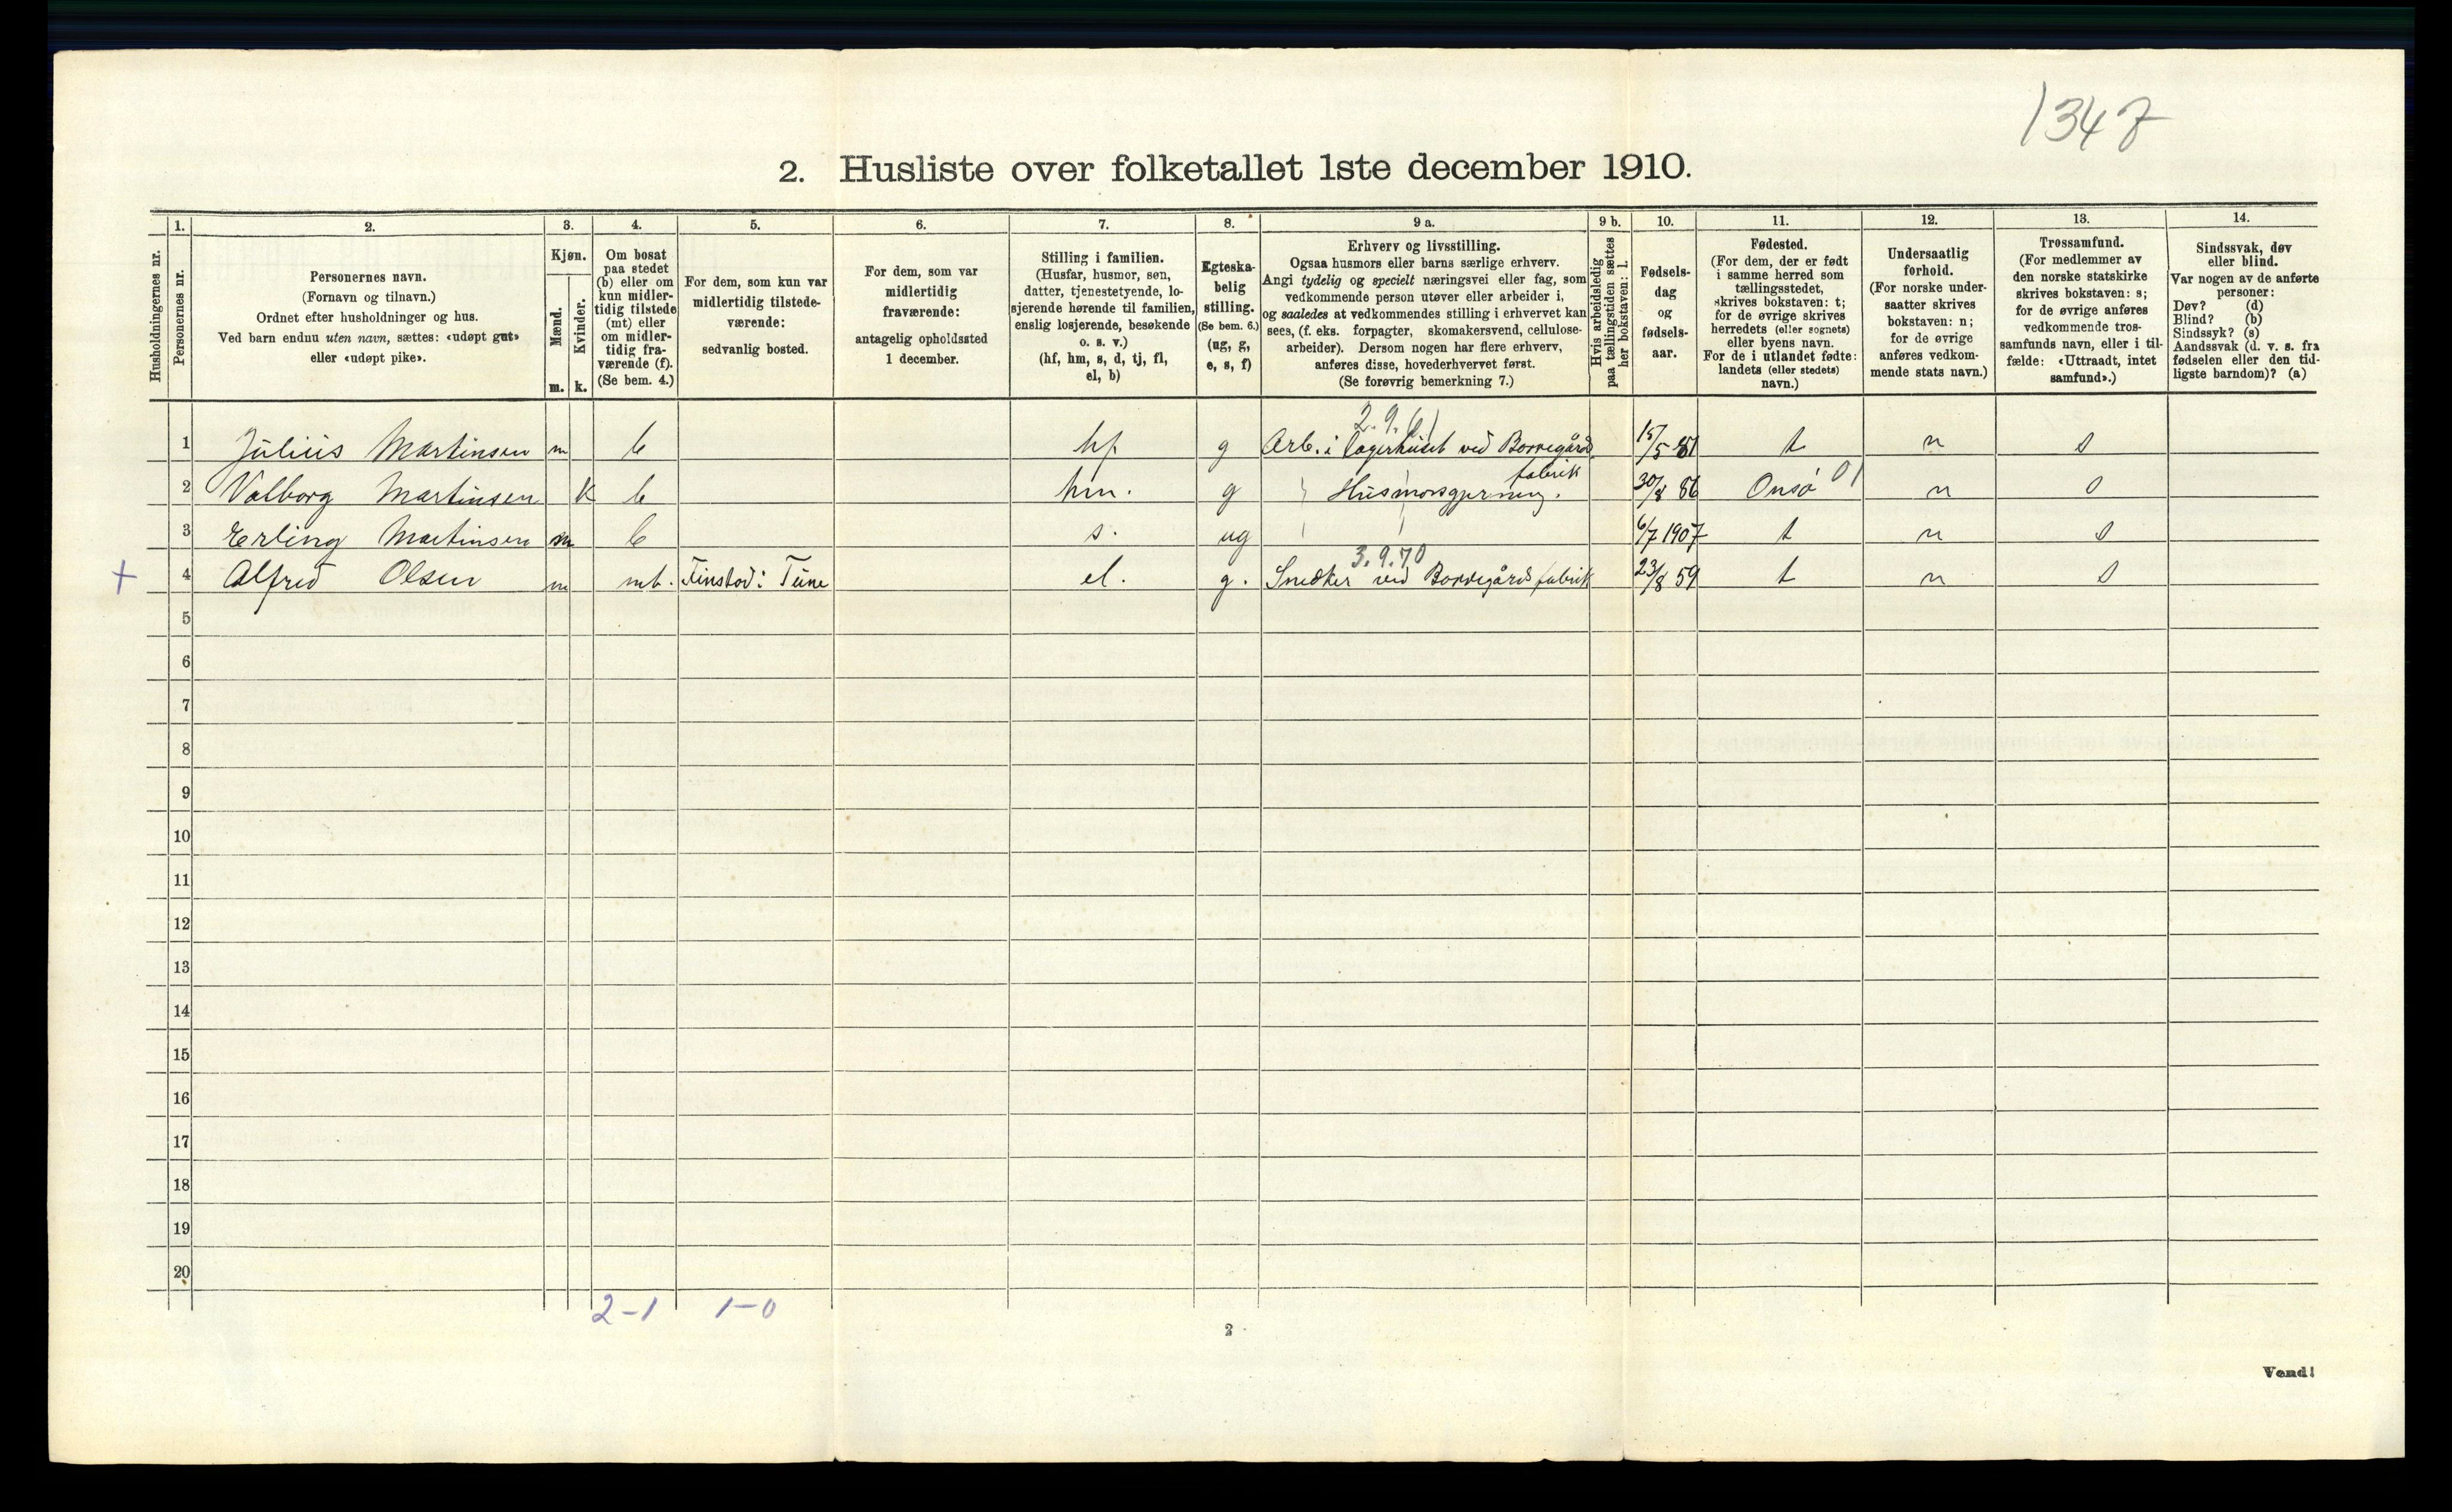 1347
2. Husliste over folketallet 1ste december 1910.
Husholdningernes nr.
1.
Personernes nr.
2.
Personernes navn.
(Fornavn og tilnavn.)
Ordnet efter husholdninger og hus.
Ved barn endnu uten navn, sættes: «udøpt gut»
eller «udøpt pike».
3.
Kjøn.
Mænd.
m.
Kvinder.
k.
4.
Om bosat
paa stedet
(b) eller om
kun midler-
tidig tilstede
(mt) eller
om midler-
tidig fra-
værende (f).
(Se bem. 4.)
5.
For dem, som kun var
midlertidig tilstede-
værende:
sedvanlig bosted.
6.
For dem, som var
midlertidig
fraværende:
antagelig opholdssted
1 december.
7.
Stilling i familien.
(Husfar, husmor, søn,
datter, tjenestetyende, lo-
sjerende hørende til familien,
enslig losjerende, besøkende
o. s. v.)
(hf, hm, s, d, tj, fl,
el, b)
8.
Egteska-
belig
stilling.
(Se bem. 6.)
(ug, g,
e, s, f)
9 a.
Erhverv og livsstilling.
Ogsaa husmors eller barns særlige erhverv.
Angi tydelig og specielt næringsvei eller fag, som
vedkommende person utøver eller arbeider i,
og saaledes at vedkommendes stilling i erhvervet kan
sees, (f. eks. forpagter, skomakersvend, cellulose-
arbeider). Dersom nogen har flere erhverv,
anføres disse, hovederhvervet først.
(Se forøvrig bemerkning 7.)
9 b.
Hvis arbeidsledig
paa tællingstiden sættes
her bokstaven: l.
10.
Fødsels-
dag
og
fødsels-
aar.
11.
Fødested.
(For dem, der er født
i samme herred som
tællingsstedet,
skrives bokstaven: t;
for de øvrige skrives
herredets (eller sognets)
eller byens navn.
For de i utlandet fødte:
landets (eller stedets)
navn.)
12.
Undersaatlig
forhold.
(For norske under-
saatter skrives
bokstaven: n;
for de øvrige
anføres vedkom-
mende stats navn.)
13.
Trossamfund.
(For medlemmer av
den norske statskirke
skrives bokstaven: s;
for de øvrige anføres
vedkommende tros-
samfunds navn, eller i til-
fælde: «Uttraadt, intet
samfund».)
14.
Sindssvak, døv
eller blind.
Var nogen av de anførte
personer:
Døv? (d)
Blind? (b)
Sindssyk? (s)
Aandssvak (d. v. s. fra
fødselen eller den tid-
ligste barndom)? (a)
1 Julius Martinsen m b hf g Arb. i lagerhuset ved Borregårds fabrik 15/5 81 t n s
2 Valborg Martinsen k b hm. g Husmorsgjerning. 30/8 86 Onsø 01 n s
3 Erling Martinsen m b s. ug 6/7 1907 t n s
3.9.70
+ 4 Alfred Olsen m mt. Finstad: Tune el. g. Snedker ved Borregårds fabrik 23/8 59 t n s
5
6
7
8
9
10
11
12
13
14
15
16
17
18
19
20
2-1 1-0
2
Vend!